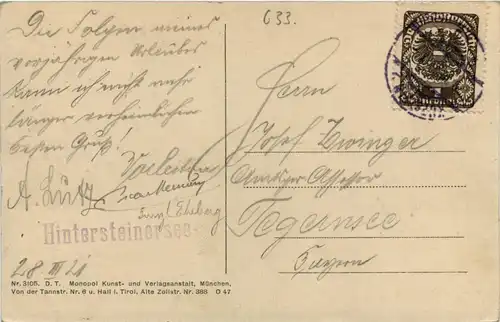 633.
Die Folgen meines
vorjährigen Urlaubes
kann ich nicht mehr
länger verheimlichen
besten Gruß!
A. Lutz
Hintersteinersee
28 III 21
Herrn
Josef Zwinger
Assessor
Tegernsee
Bayern
Nr. 3105. D. T. Monopol Kunst- und Verlagsanstalt, München,
Von der Tannstr. Nr. 6 u. Hall i. Tirol, Alte Zollstr. Nr. 388 D 47